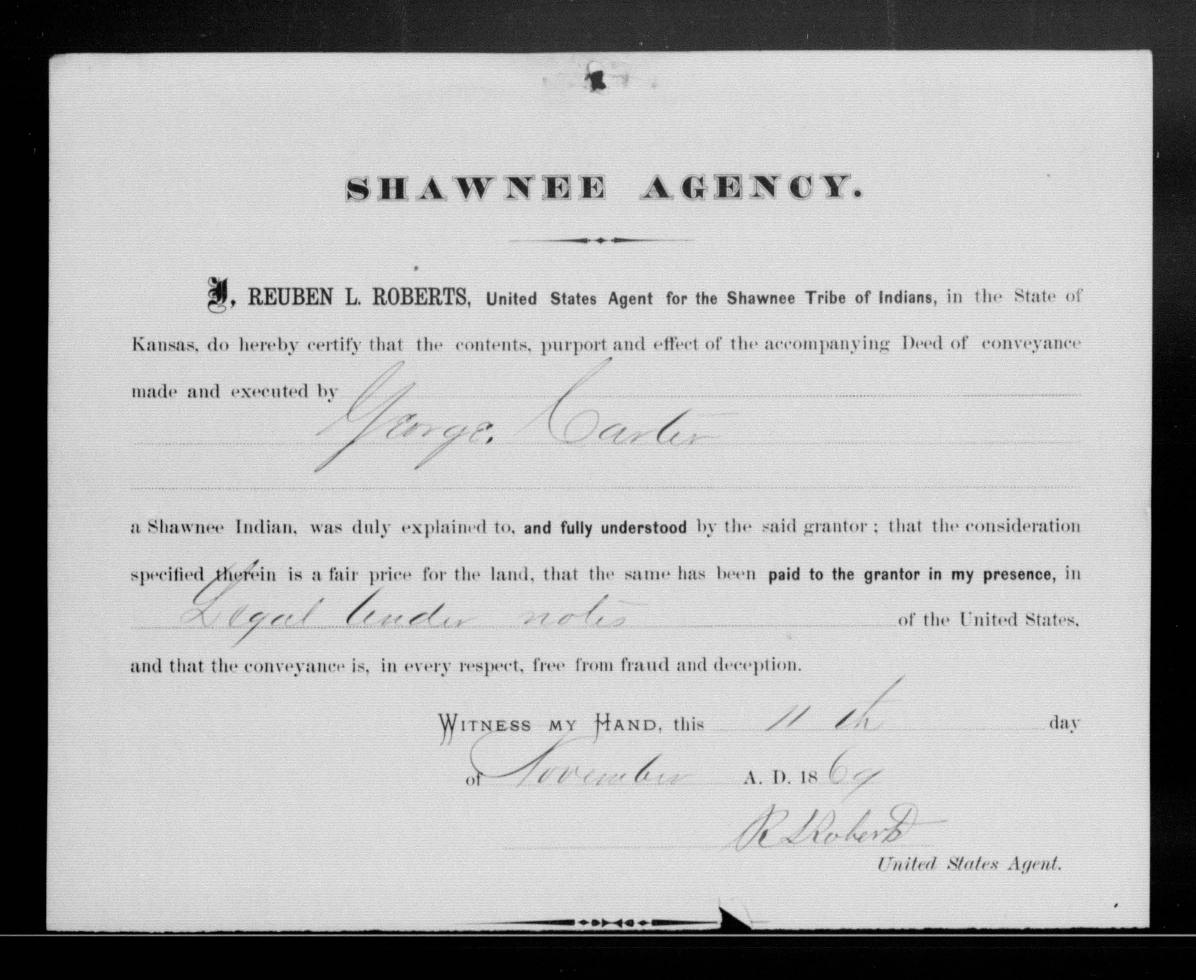 SHAWNEE AGENCY.
I, REUBEN L. ROBERTS, United States Agent for the Shawnee Tribe of Indians, in the State of
Kansas, do hereby certify that the contents, purport and effect of the accompanying Deed of conveyance
made and executed by
George. Carter
a Shawnee Indian, was duly explained to, and fully understood by the said grantor; that the consideration
specified therein is a fair price for the land, that the same has been paid to the grantor in my presence, in
Legal tender notes of the United States,
and that the conveyance is, in every respect, free from fraud and deception.
WITNESS MY HAND, this 11th day
of November A. D. 1869
R L Roberts
United States Agent.